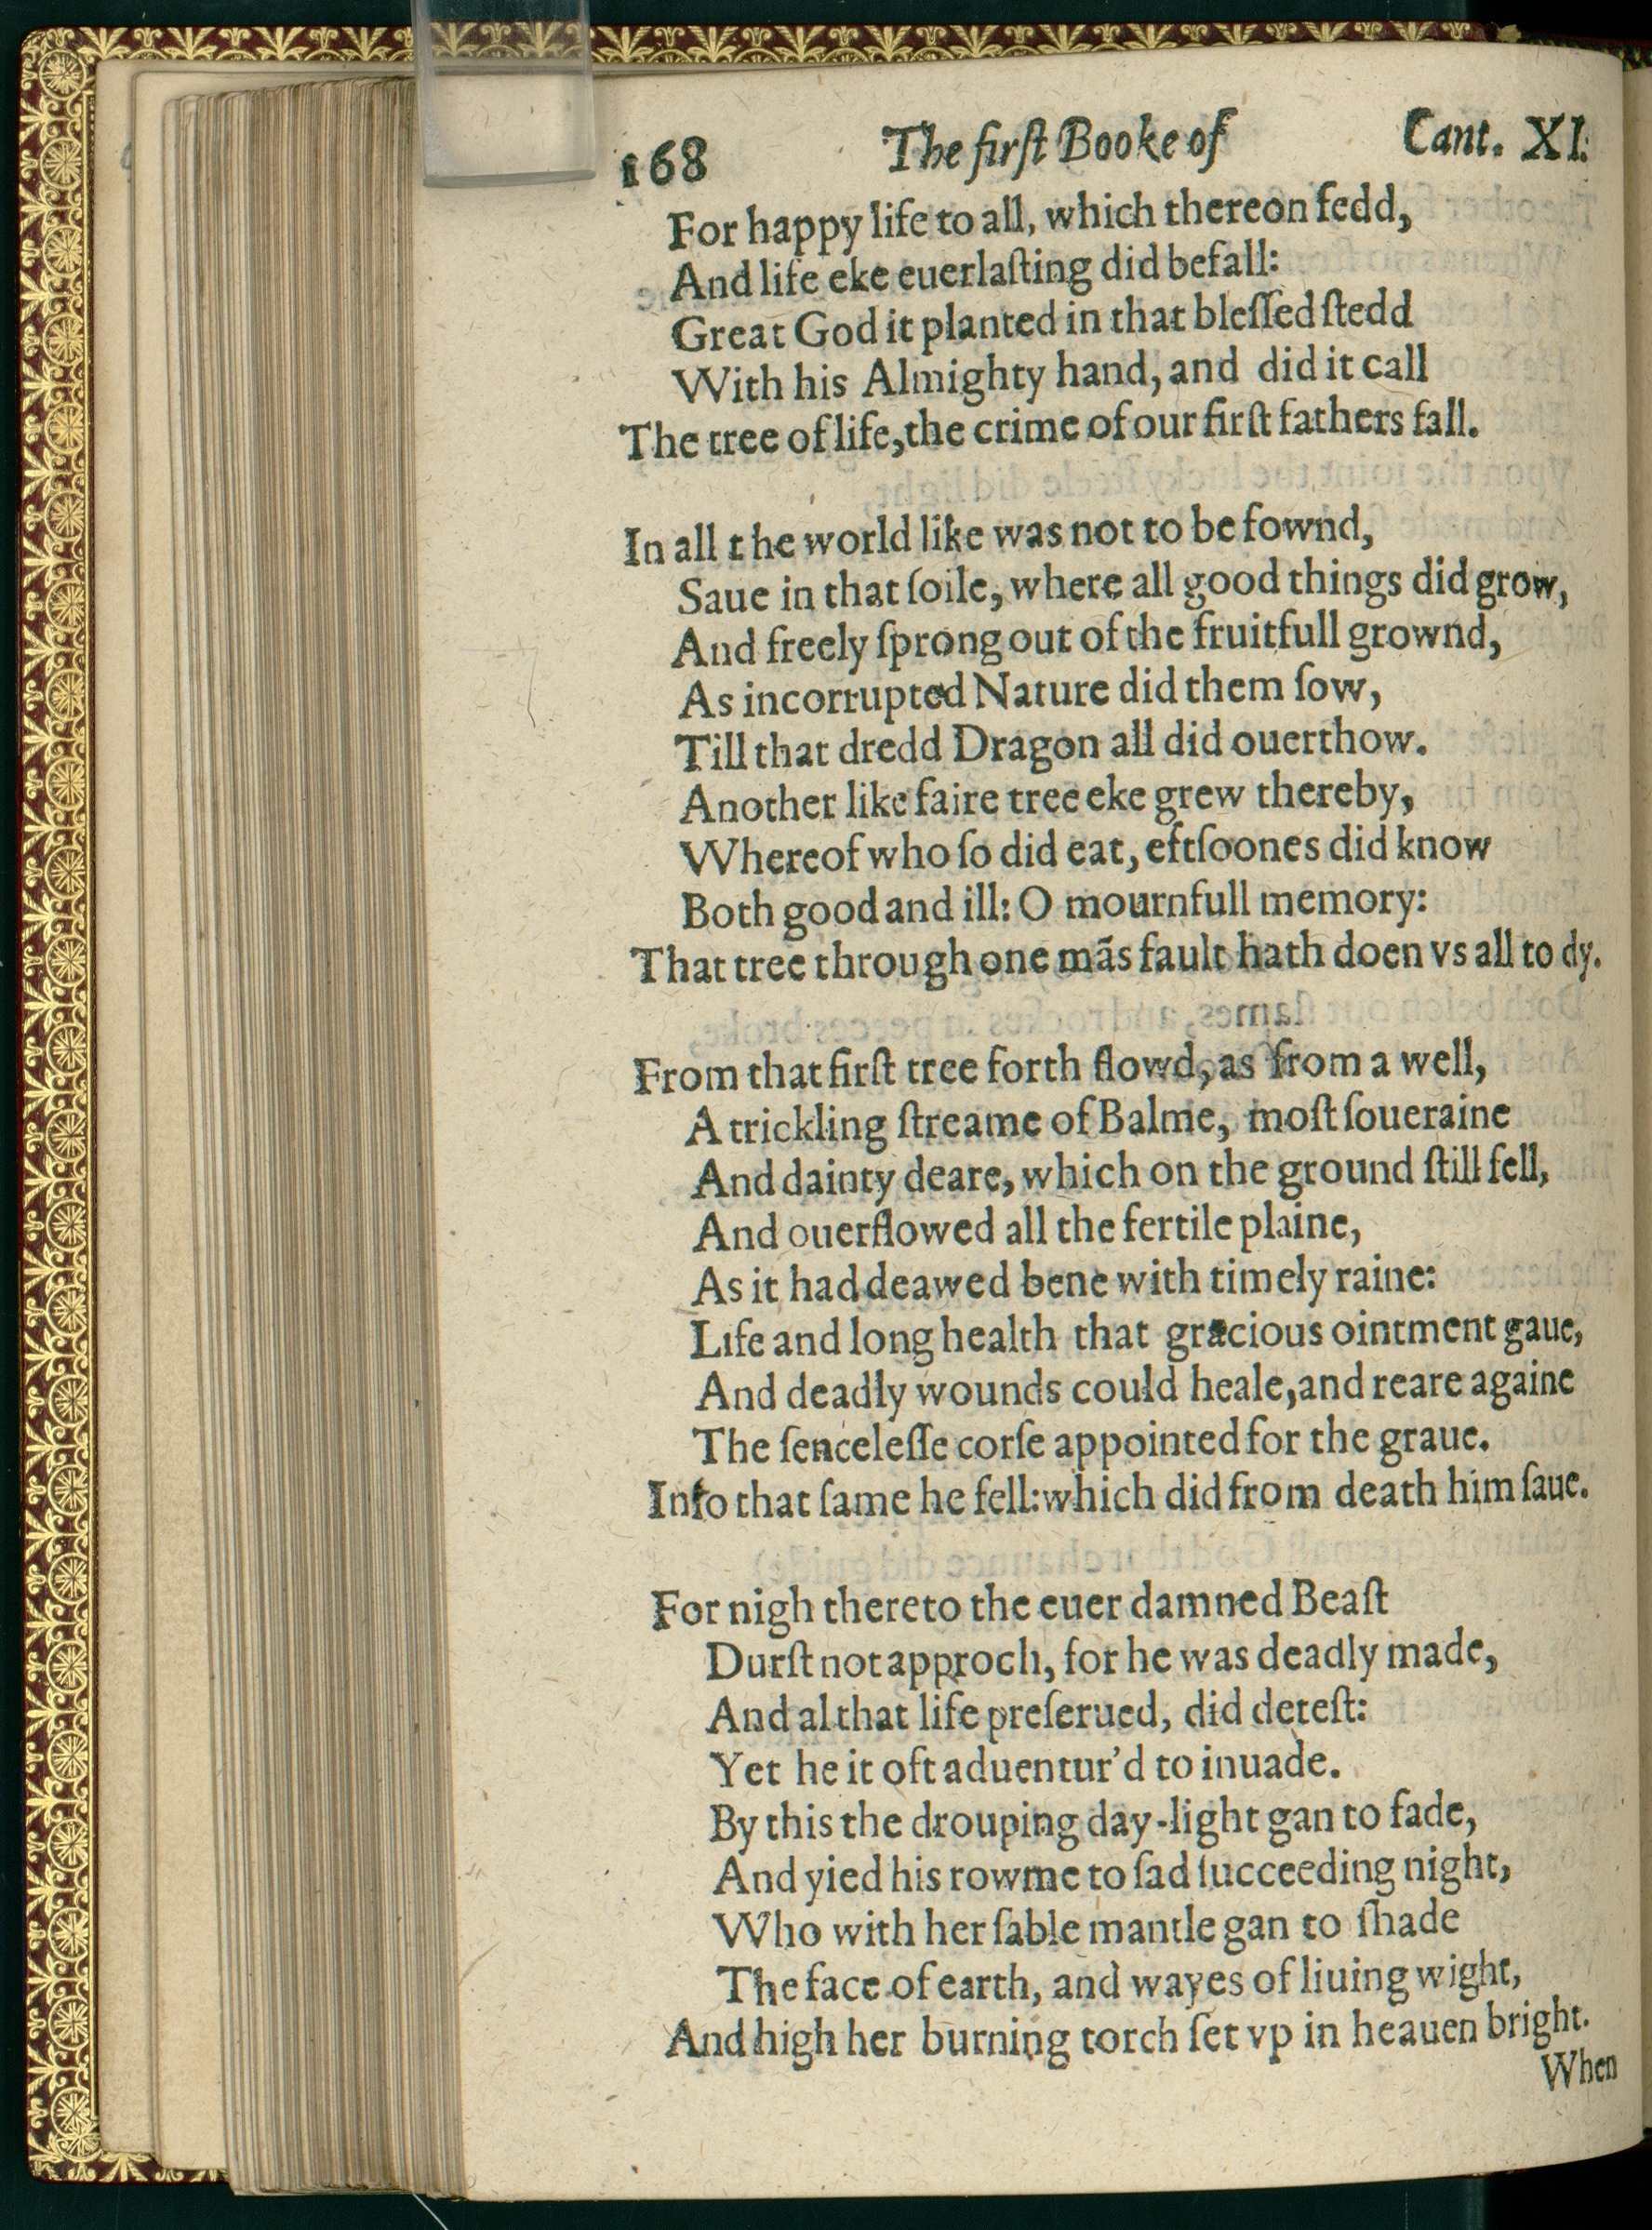 168 The firſt Booke of Cant. XI.
For happy life to all, which thereon fedd,
And life eke euerlaſting did befall:
Great God it planted in that bleſſed ſtedd
With his Almighty hand, and did it call
The tree of life, the crime of our firſt fathers fall.
In all the world like was not to be fownd,
Saue in that ſoile, where all good things did grow,
And freely ſprong out of the fruitfull grownd,
As incorrupted Nature did them ſow,
Till that dredd Dragon all did ouerthow.
Another like faire tree eke grew thereby,
Whereof who ſo did eat, eftſoones did know
Both good and ill: O mournfull memory:
That tree through one mãs fault hath doen vs all to dy.
From that firſt tree forth flowd, as from a well,
A trickling ſtreame of Balme, moſt ſoueraine
And dainty deare, which on the ground ſtill fell,
And ouerflowed all the fertile plaine,
As it had deawed bene with timely raine:
Life and long health that gracious ointment gaue,
And deadly wounds could heale, and reare againe
The ſenceleſſe corſe appointed for the graue.
Into that ſame he fell: which did from death him ſaue.
For nigh thereto the euer damned Beaſt
Durſt not approch, for he was deadly made,
And al that life preſerued, did deteſt:
Yet he it oft aduentur'd to inuade.
By this the drouping day-light gan to fade,
And yied his rowme to ſad ſucceeding night,
Who with her ſable mantle gan to ſhade
The face of earth, and wayes of liuing wight,
And high her burning torch ſet vp in heauen bright.
When